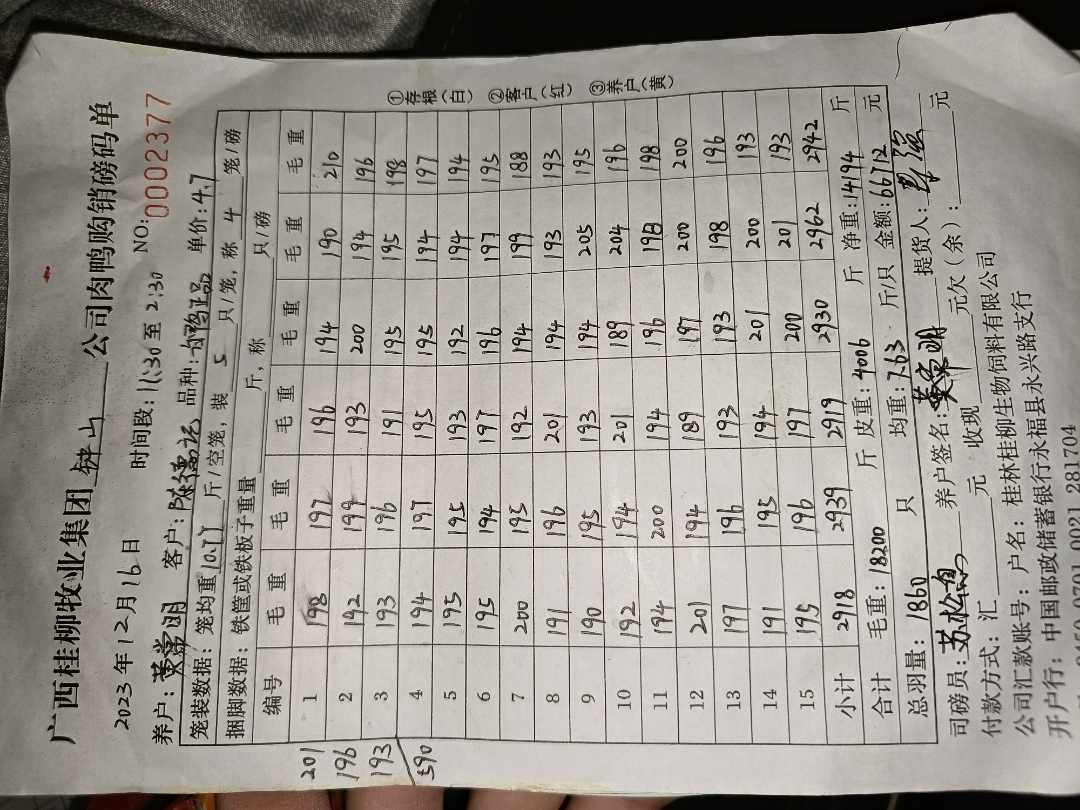 广西桂柳牧业集团钟山公司肉鸭购销磅码单
2023年12月16日 时间段:11:30至2:30 NO:0002377
养户: 客户: 品种: 单价:4.7
笼装数据:笼均重10.77斤/空笼,装5只/笼,称4笼磅
捆脚数据:铁筐或铁板子重量 斤,称 只/磅
编号 毛重 毛重 毛重 毛重 毛重 毛重
1 198 197 196 194 190 210
2 192 199 193 200 194 196
3 193 196 191 195 195 198
4 194 197 195 195 194 197
5 195 195 193 192 194 194
6 195 194 197 196 197 195
7 200 195 192 194 199 188
8 191 196 201 194 193 193
9 190 195 193 194 205 195
10 192 194 201 189 204 196
11 194 200 194 196 198 198
12 201 194 189 197 200 200
13 197 196 193 193 198 196
14 191 195 194 201 200 193
15 195 196 197 200 201 193
小计 2918 2939 2919 2930 2962 2942
合计 毛重:18200 斤 皮重:4006 斤 净重:14194 斤
总羽量:1860 只 均重:7.63 斤/只 金额:66712 元
司磅员: 养户签名: 提货人:
付款方式:汇 元 收现 元欠(余): 元
公司汇款账号:户名:桂林桂柳生物饲料有限公司
开户行:中国邮政储蓄银行永福县永兴路支行
0701 0021 281704
①存根(白) ②客户(红) ③养户(黄)
201
196
193
590